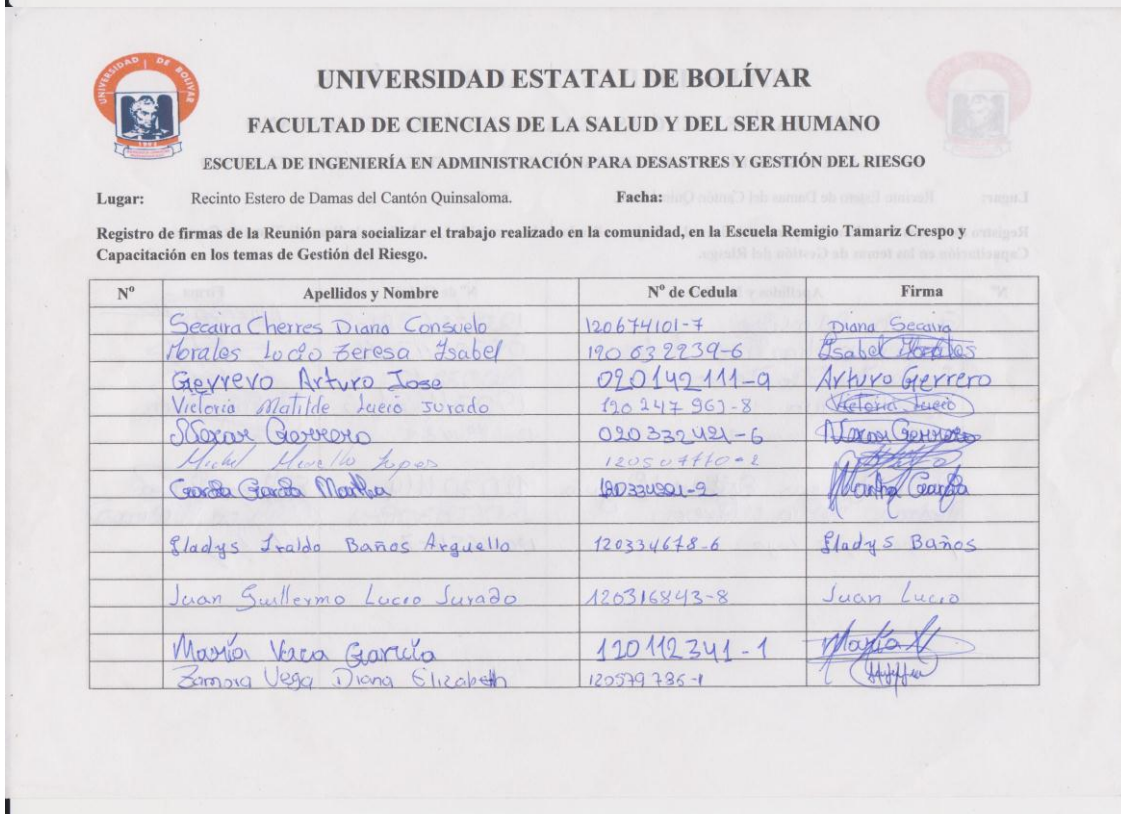 UNIVERSIDAD DE BOLIVAR
UNIVERSIDAD ESTATAL DE BOLÍVAR
FACULTAD DE CIENCIAS DE LA SALUD Y DEL SER HUMANO
ESCUELA DE INGENIERÍA EN ADMINISTRACIÓN PARA DESASTRES Y GESTIÓN DEL RIESGO
Lugar: Recinto Estero de Damas del Cantón Quinsaloma. Facha:
Registro de firmas de la Reunión para socializar el trabajo realizado en la comunidad, en la Escuela Remigio Tamariz Crespo y
Capacitación en los temas de Gestión del Riesgo.
Nº Apellidos y Nombre Nº de Cedula Firma
Secaira Cherres Diana Consuelo 120674101-7 Diana Secaira
Morales Lucio Teresa Isabel 120 632239-6 Isabel Morales
Gerrero Arturo Jose 020142111-9 Arturo Gerrero
Victoria Matilde Lucio Jurado 120 247 963-8 Victoria Lucio
Gerrero 020332421-6 Gerrero
Garcia Garcia Martha Martha Garcia
Gladys Iralda Baños Arguello 120334678-6 Gladys Baños
Juan Guillermo Lucio Jurado 120316843-8 Juan Lucio
María Vaca García 120112341-1 María V
Zamora Vega Diana Elizabeth 120579786-1